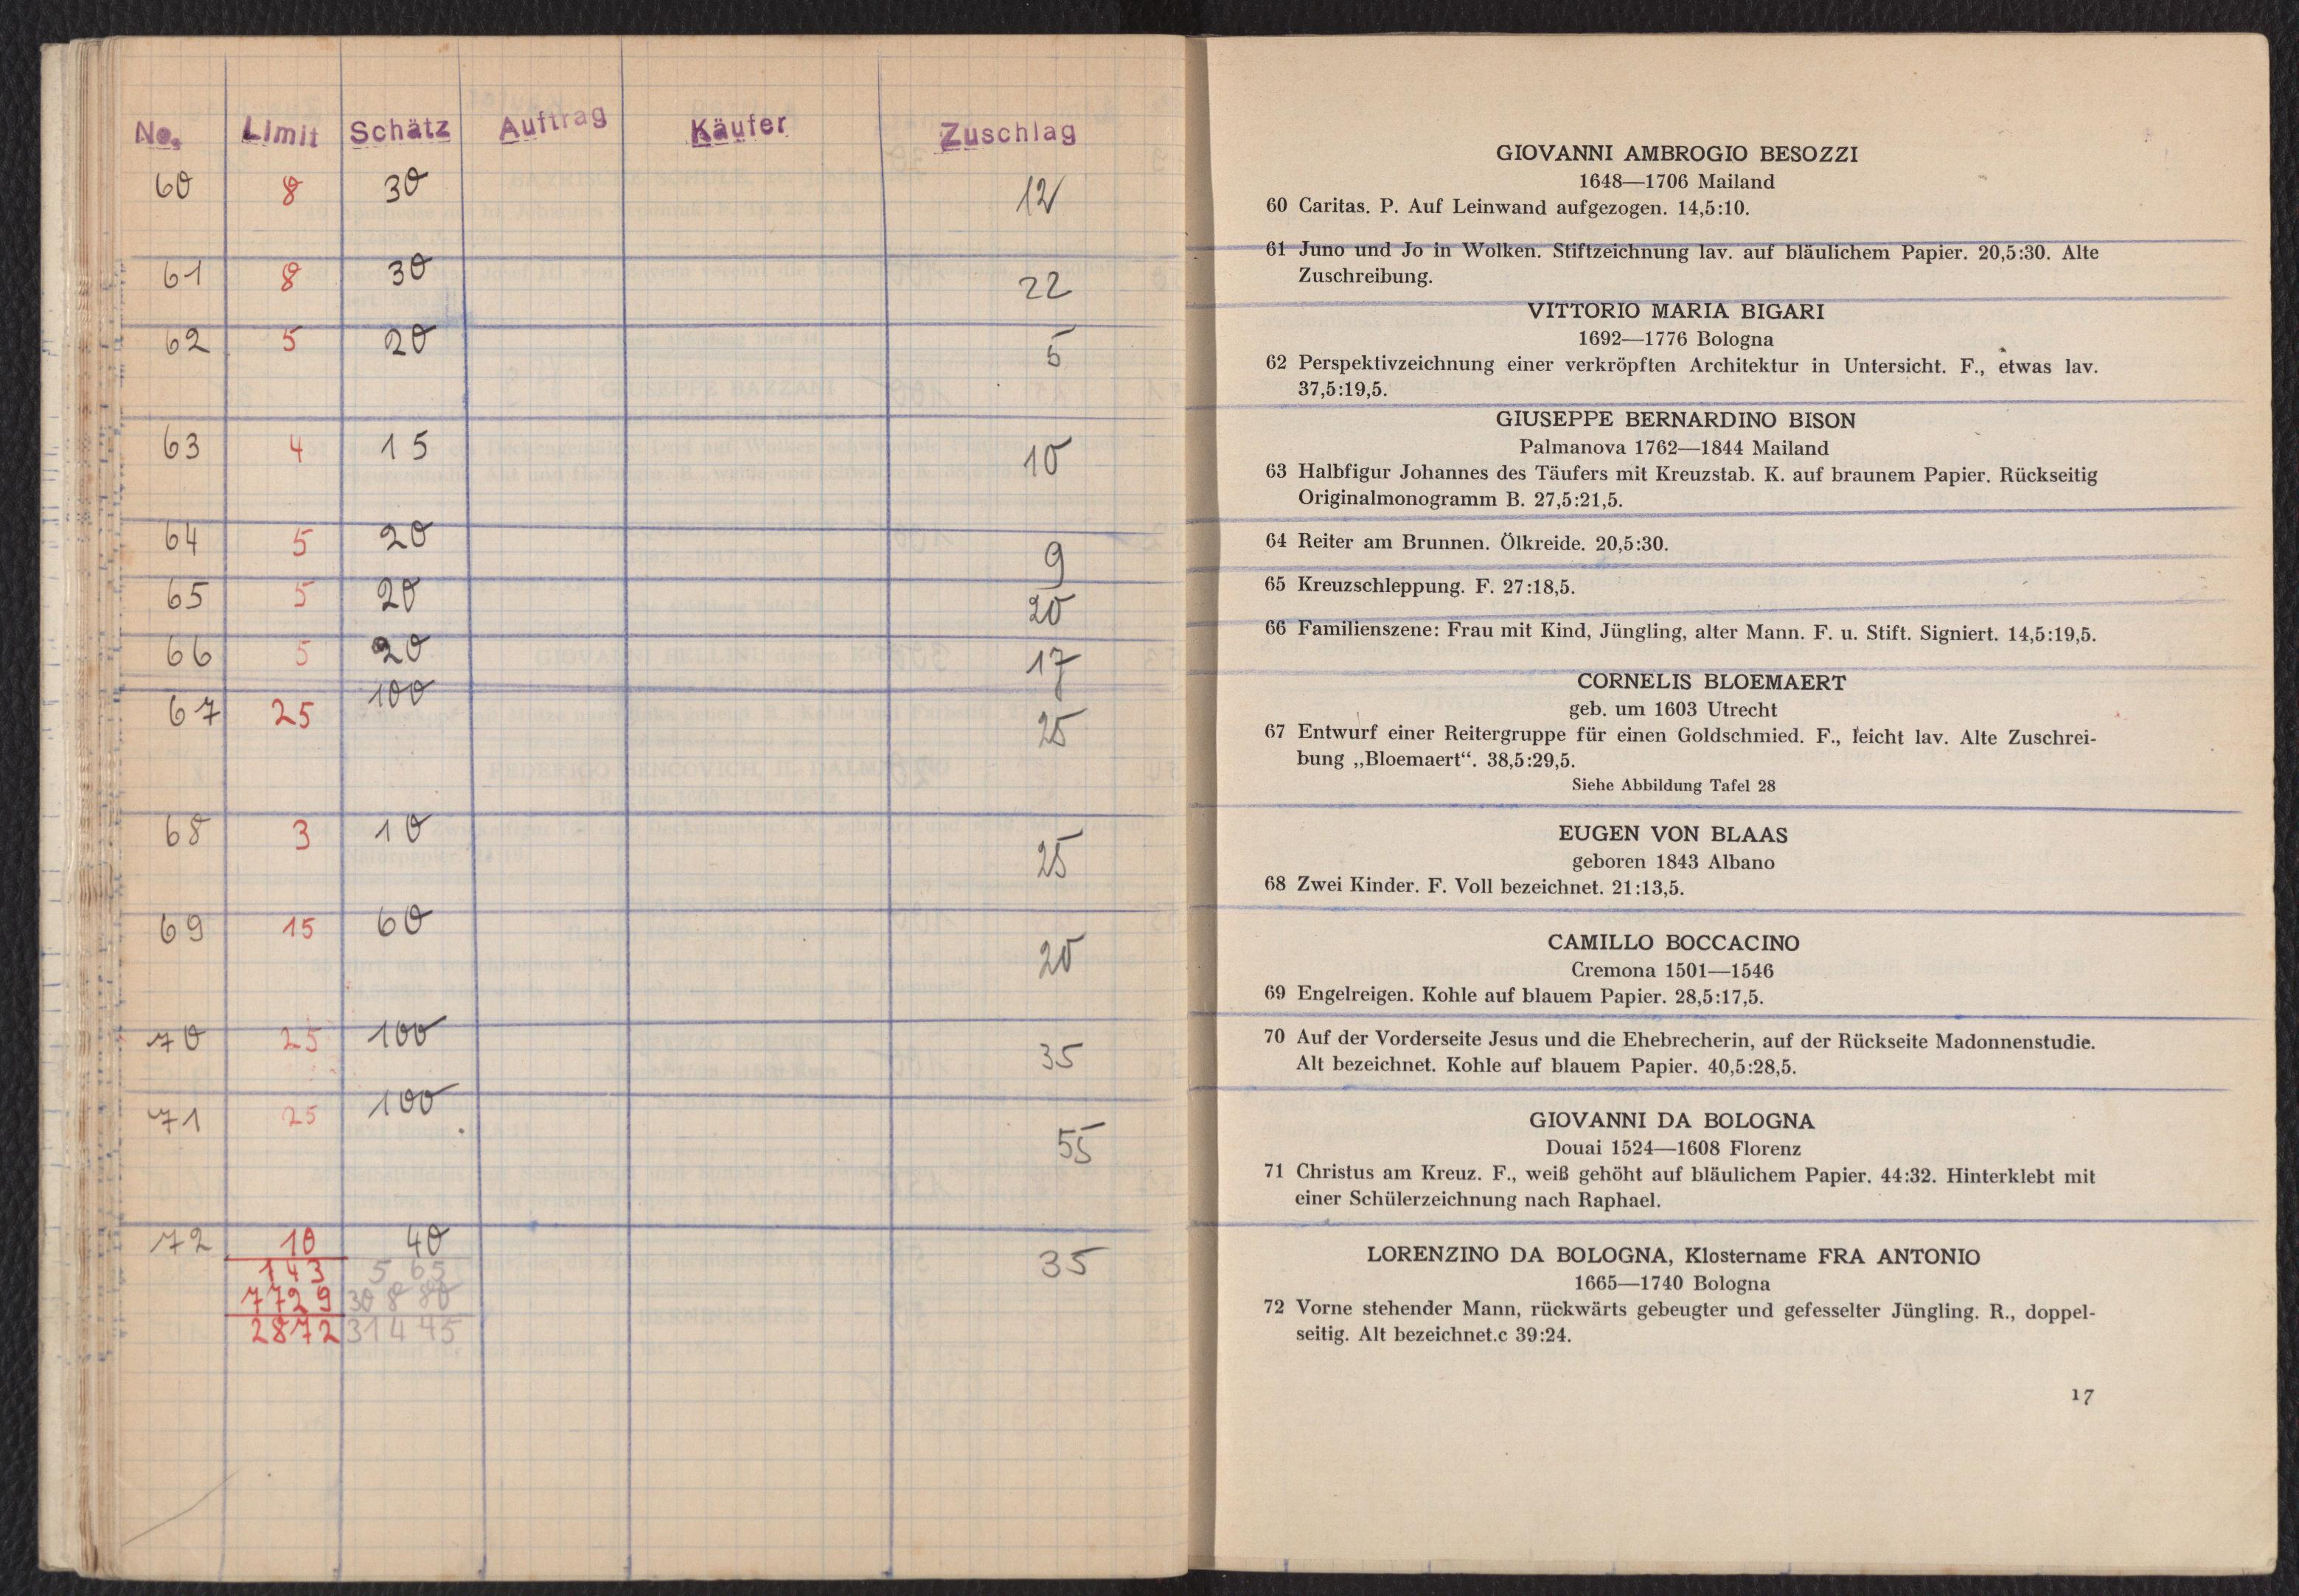 No. Limit Schätz Auftrag Käufer Zuschlag
60 8 30 12
61 8 30 22
62 5 20 5
63 4 15 10
64 5 20 9
65 5 20 20
66 5 20 17
67 25 100 25
68 3 10 25
69 15 60 20
70 25 100 35
71 25 100 55
72 10 40 35
143 565
7729 30880
2872 31445
GIOVANNI AMBROGIO BESOZZI
1648—1706 Mailand
60 Caritas. P. Auf Leinwand aufgezogen. 14,5:10.
61 Juno und Jo in Wolken. Stiftzeichnung lav. auf bläulichem Papier. 20,5:30. Alte
Zuschreibung.
VITTORIO MARIA BIGARI
1692—1776 Bologna
62 Perspektivzeichnung einer verkröpften Architektur in Untersicht. F., etwas lav.
37,5:19,5.
GIUSEPPE BERNARDINO BISON
Palmanova 1762—1844 Mailand
63 Halbfigur Johannes des Täufers mit Kreuzstab. K. auf braunem Papier. Rückseitig
Originalmonogramm B. 27,5:21,5.
64 Reiter am Brunnen. Ölkreide. 20,5:30.
65 Kreuzschleppung. F. 27:18,5.
66 Familienszene: Frau mit Kind, Jüngling, alter Mann. F. u. Stift. Signiert. 14,5:19,5.
CORNELIS BLOEMAERT
geb. um 1603 Utrecht
67 Entwurf einer Reitergruppe für einen Goldschmied. F., leicht lav. Alte Zuschrei-
bung „Bloemaert“. 38,5:29,5.
Siehe Abbildung Tafel 28
EUGEN VON BLAAS
geboren 1843 Albano
68 Zwei Kinder. F. Voll bezeichnet. 21:13,5.
CAMILLO BOCCACINO
Cremona 1501—1546
69 Engelreigen. Kohle auf blauem Papier. 28,5:17,5.
70 Auf der Vorderseite Jesus und die Ehebrecherin, auf der Rückseite Madonnenstudie.
Alt bezeichnet. Kohle auf blauem Papier. 40,5:28,5.
GIOVANNI DA BOLOGNA
Douai 1524—1608 Florenz
71 Christus am Kreuz. F., weiß gehöht auf bläulichem Papier. 44:32. Hinterklebt mit
einer Schülerzeichnung nach Raphael.
LORENZINO DA BOLOGNA, Klostername FRA ANTONIO
1665—1740 Bologna
72 Vorne stehender Mann, rückwärts gebeugter und gefesselter Jüngling. R., doppel-
seitig. Alt bezeichnet.c 39:24.
17